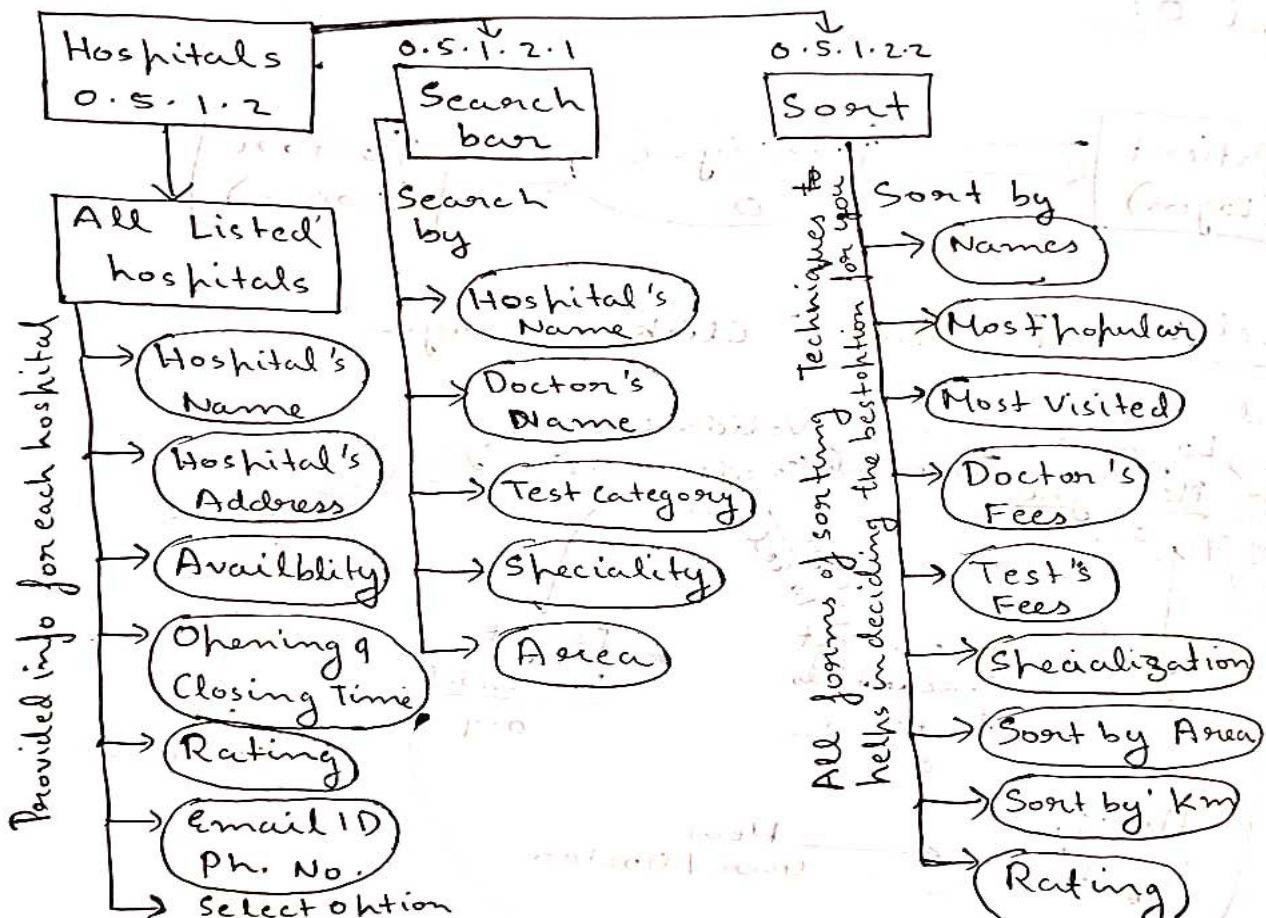 Hospitals
0.5.1.2
0.5.1.2.1
Search
bar
0.5.1.2.2
Sort
All Listed
hospitals
Provided info for each hospital
Hospital's
Name
Hospital's
Address
Availblity
Opening &
Closing Time
Rating
Email ID
Ph. No.
Select option
Search
by
Hospital's
Name
Doctor's
Name
Test category
Speciality
Area
All forms of sorting Techniques to
helps in deciding the best option for you
Sort by
Names
Most popular
Most Visited
Doctor's
Fees
Test's
Fees
Specialization
Sort by Area
Sort by Km
Rating